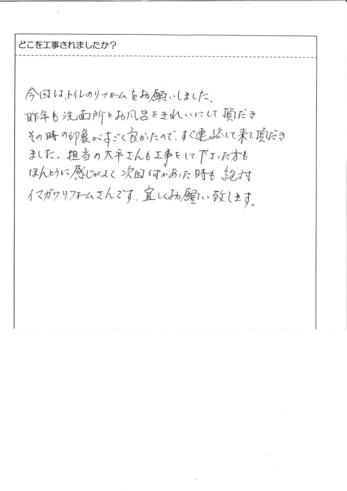 どこを工事されましたか?
今回は、トイレのリフォームをお願いしました。
昨年も洗面所とお風呂をきれいにして頂だき
その時の印象がすごく良かたので、すぐ連絡して来て頂だき
ました。担当の大平さんも工事をして下さった方も
ほんとうに感じがよく次回何かあった時も絶対
イマガワリフォームさんです。宜しくお願い致します。